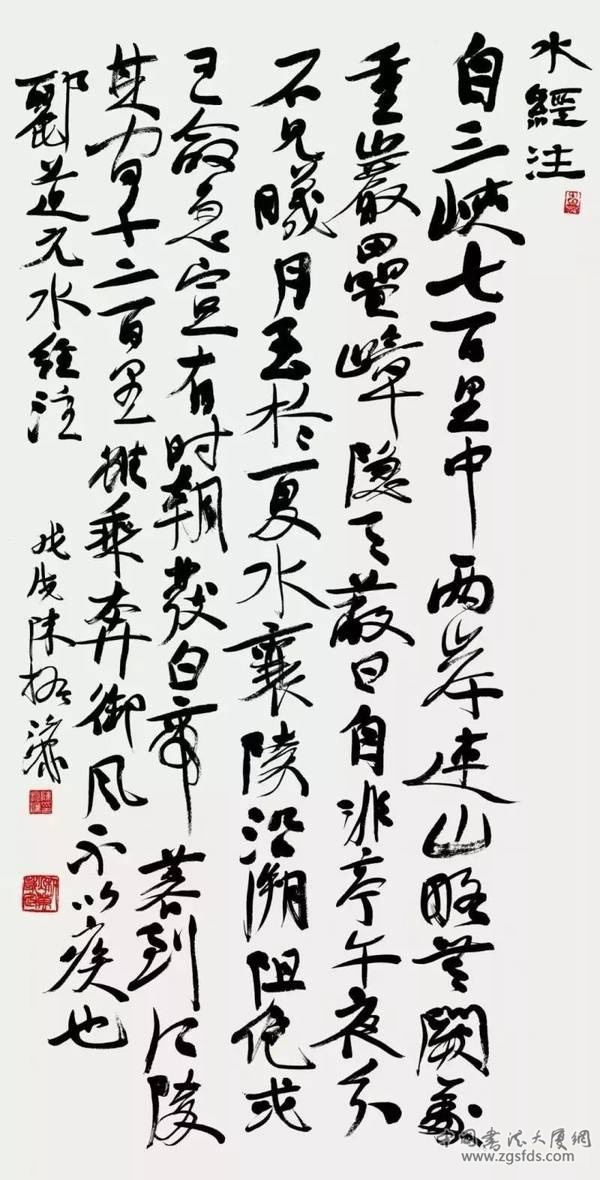 水經注
自三峽七百里中两岸連山略无闕處
重巖疊嶂隐天蔽日自非亭午夜分
不見曦月至於夏水襄陵沿溯阻绝或
王命急宣有时朝發白帝暮到江陵
其间千二百里雖乘奔御风不以疾也
酈道元水经注
戊戌陳振濂
中国書法大厦網
www.zgsfds.com